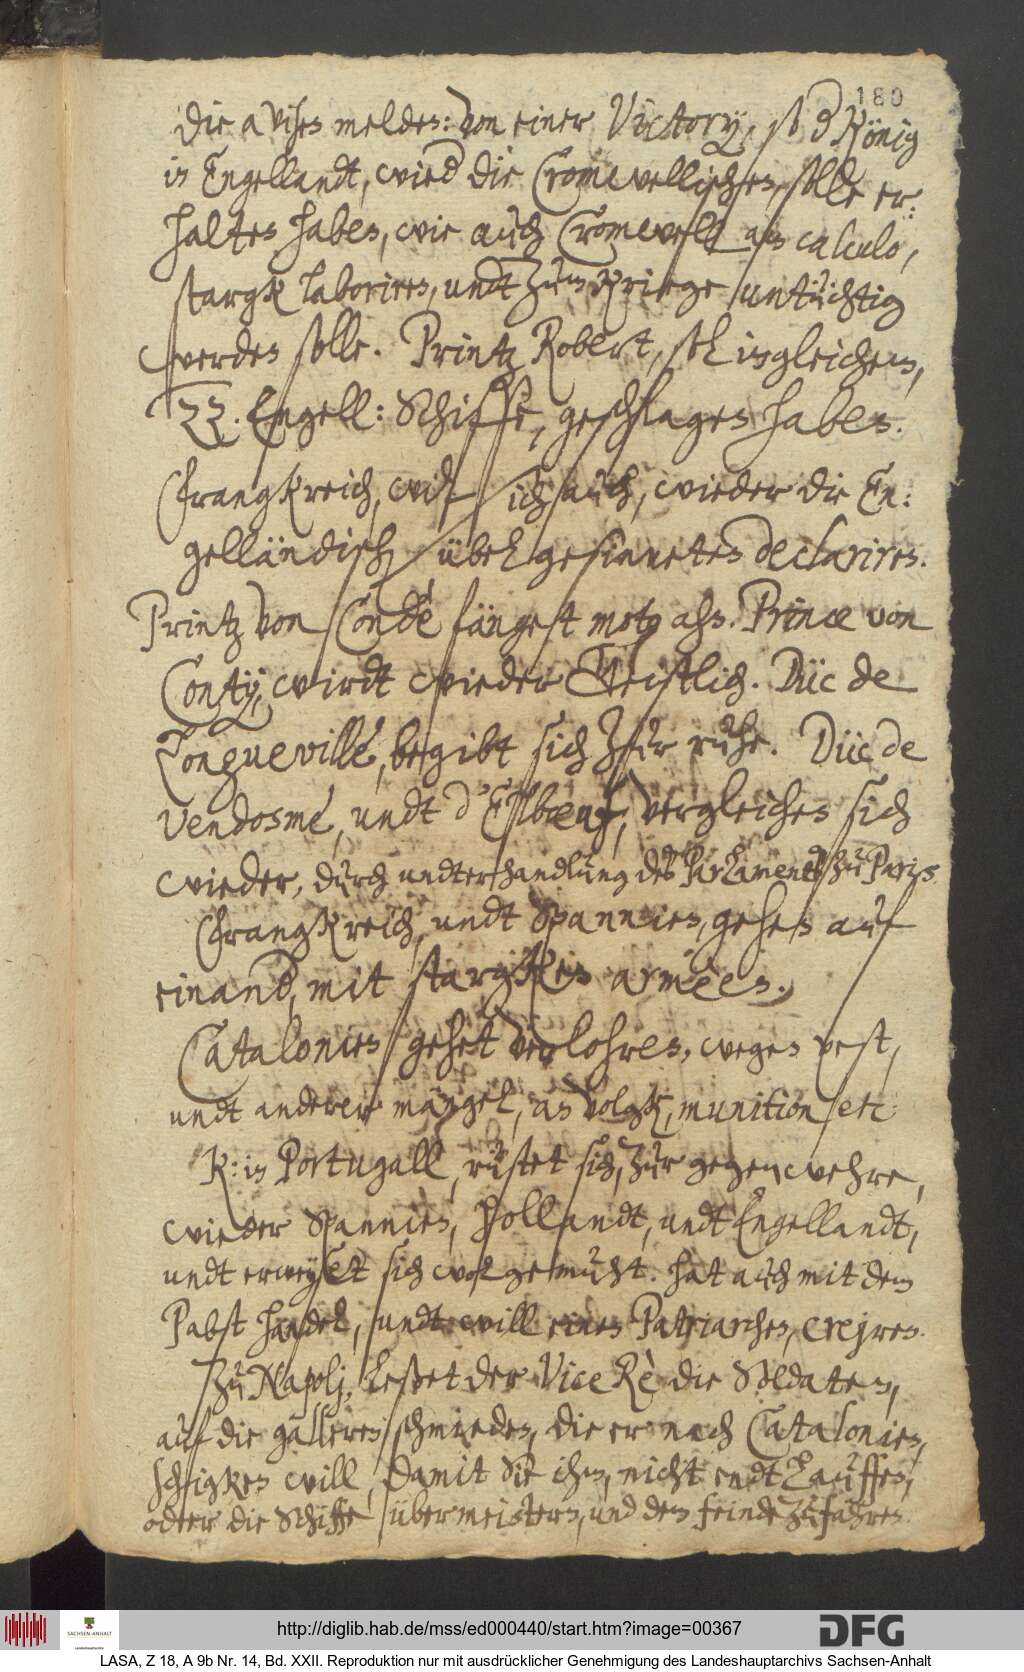 180
Die avisen melden: von einer Victory, so der König
in Engellandt, wieder die Cromwellischen, solle er:
halten haben, wie auch Cromwell an calculo,
stargk laboriren, undt zum Kriege untüchtig
werden solle. Printz Robert, sol ingleichem,
22. Engell: Schiffe, geschlagen haben.
Frangkreich, will sich auch, wieder die En:
gelländisch übel gesinneten declariren.
Printz von Condè fänget motus ahn. Prince von
Conty, wirdt wieder Geistlich. Düc de
Longueville, begibt sich zur ruhe. Düc de
Vendosme, undt d'Elboeuf, vergleichen sich
wieder, durch undterhandlung des Parlaments zu Paris
Frangkreich, undt Spannien, gehen auf
einander, mit stargken armèen.
Catalonien gehet verlohren, wegen pest,
undt anderer mängel, an volgk, munition etc
K: in Portugall, rüstet sich, zur gegenwehre,
wieder Spannien, Hollandt, undt Engellandt,
undt erweyset sich wol gemuht. hat auch mit dem
Pabst handel, undt will einen Patriarchen, creiren.
Zu Napolj, leßet der Vice Rè die Soldaten,
auf die galleren schmieden, die er nach Catalonien,
schigken will, damit Sie ihm, nicht endtlauffen,
odter die Schiffe übermeistern, und dem feinde zuführen.
http://diglib.hab.de/mss/ed000440/start.htm?image=00367
SACHSEN-ANHALT
Landeshauptarchiv
DFG
LASA, Z 18, A 9b Nr. 14, Bd. XXII. Reproduktion nur mit ausdrücklicher Genehmigung des Landeshauptarchivs Sachsen-Anhalt